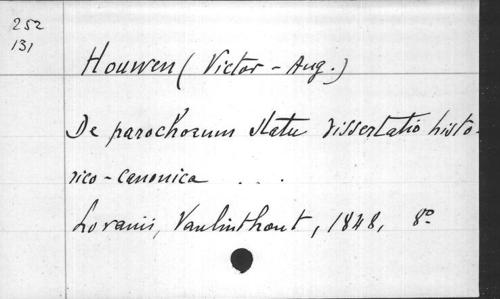 252
131
Houwen (Victor - Aug.)
De parochorum statu dissertatio histo-
rico-canonica . . .
Lovanii, Vanlinthout, 1848, 8o